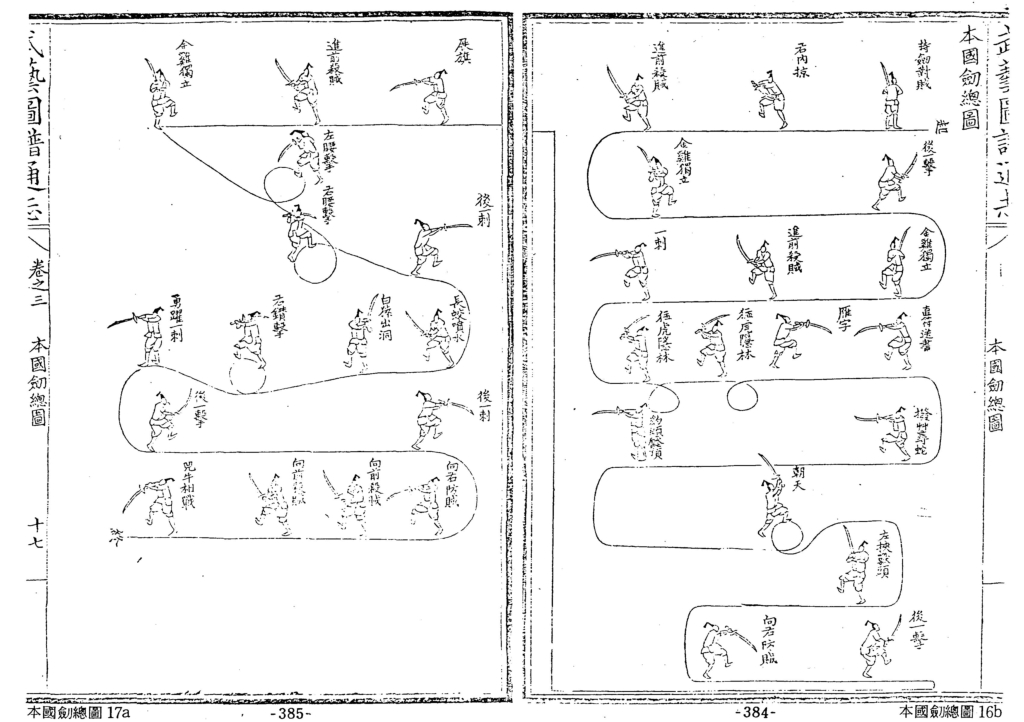 本國劍總圖
持劍對賊
右內掠
進前殺賊
後一擊
金雞獨立
金雞獨立
進前殺賊
一刺
直符送書
雁字
猛虎隱林
猛虎隱林
撥艸尋蛇
豹頭壓頂
朝天
左挾獸頭
後一擊
向右防賊
本國劍總圖
展旗
進前殺賊
金雞獨立
左腰擊
右腰擊
後一刺
長蛟噴水
白猿出洞
右鑽擊
勇躍一刺
後一擊
後一刺
向右防賊
向前殺賊
向前殺賊
兕牛相戰
終
武藝圖譜通志
卷之三
本國劍總圖
十七
本國劍總圖 17a
-385-
-384-
本國劍總圖 16b